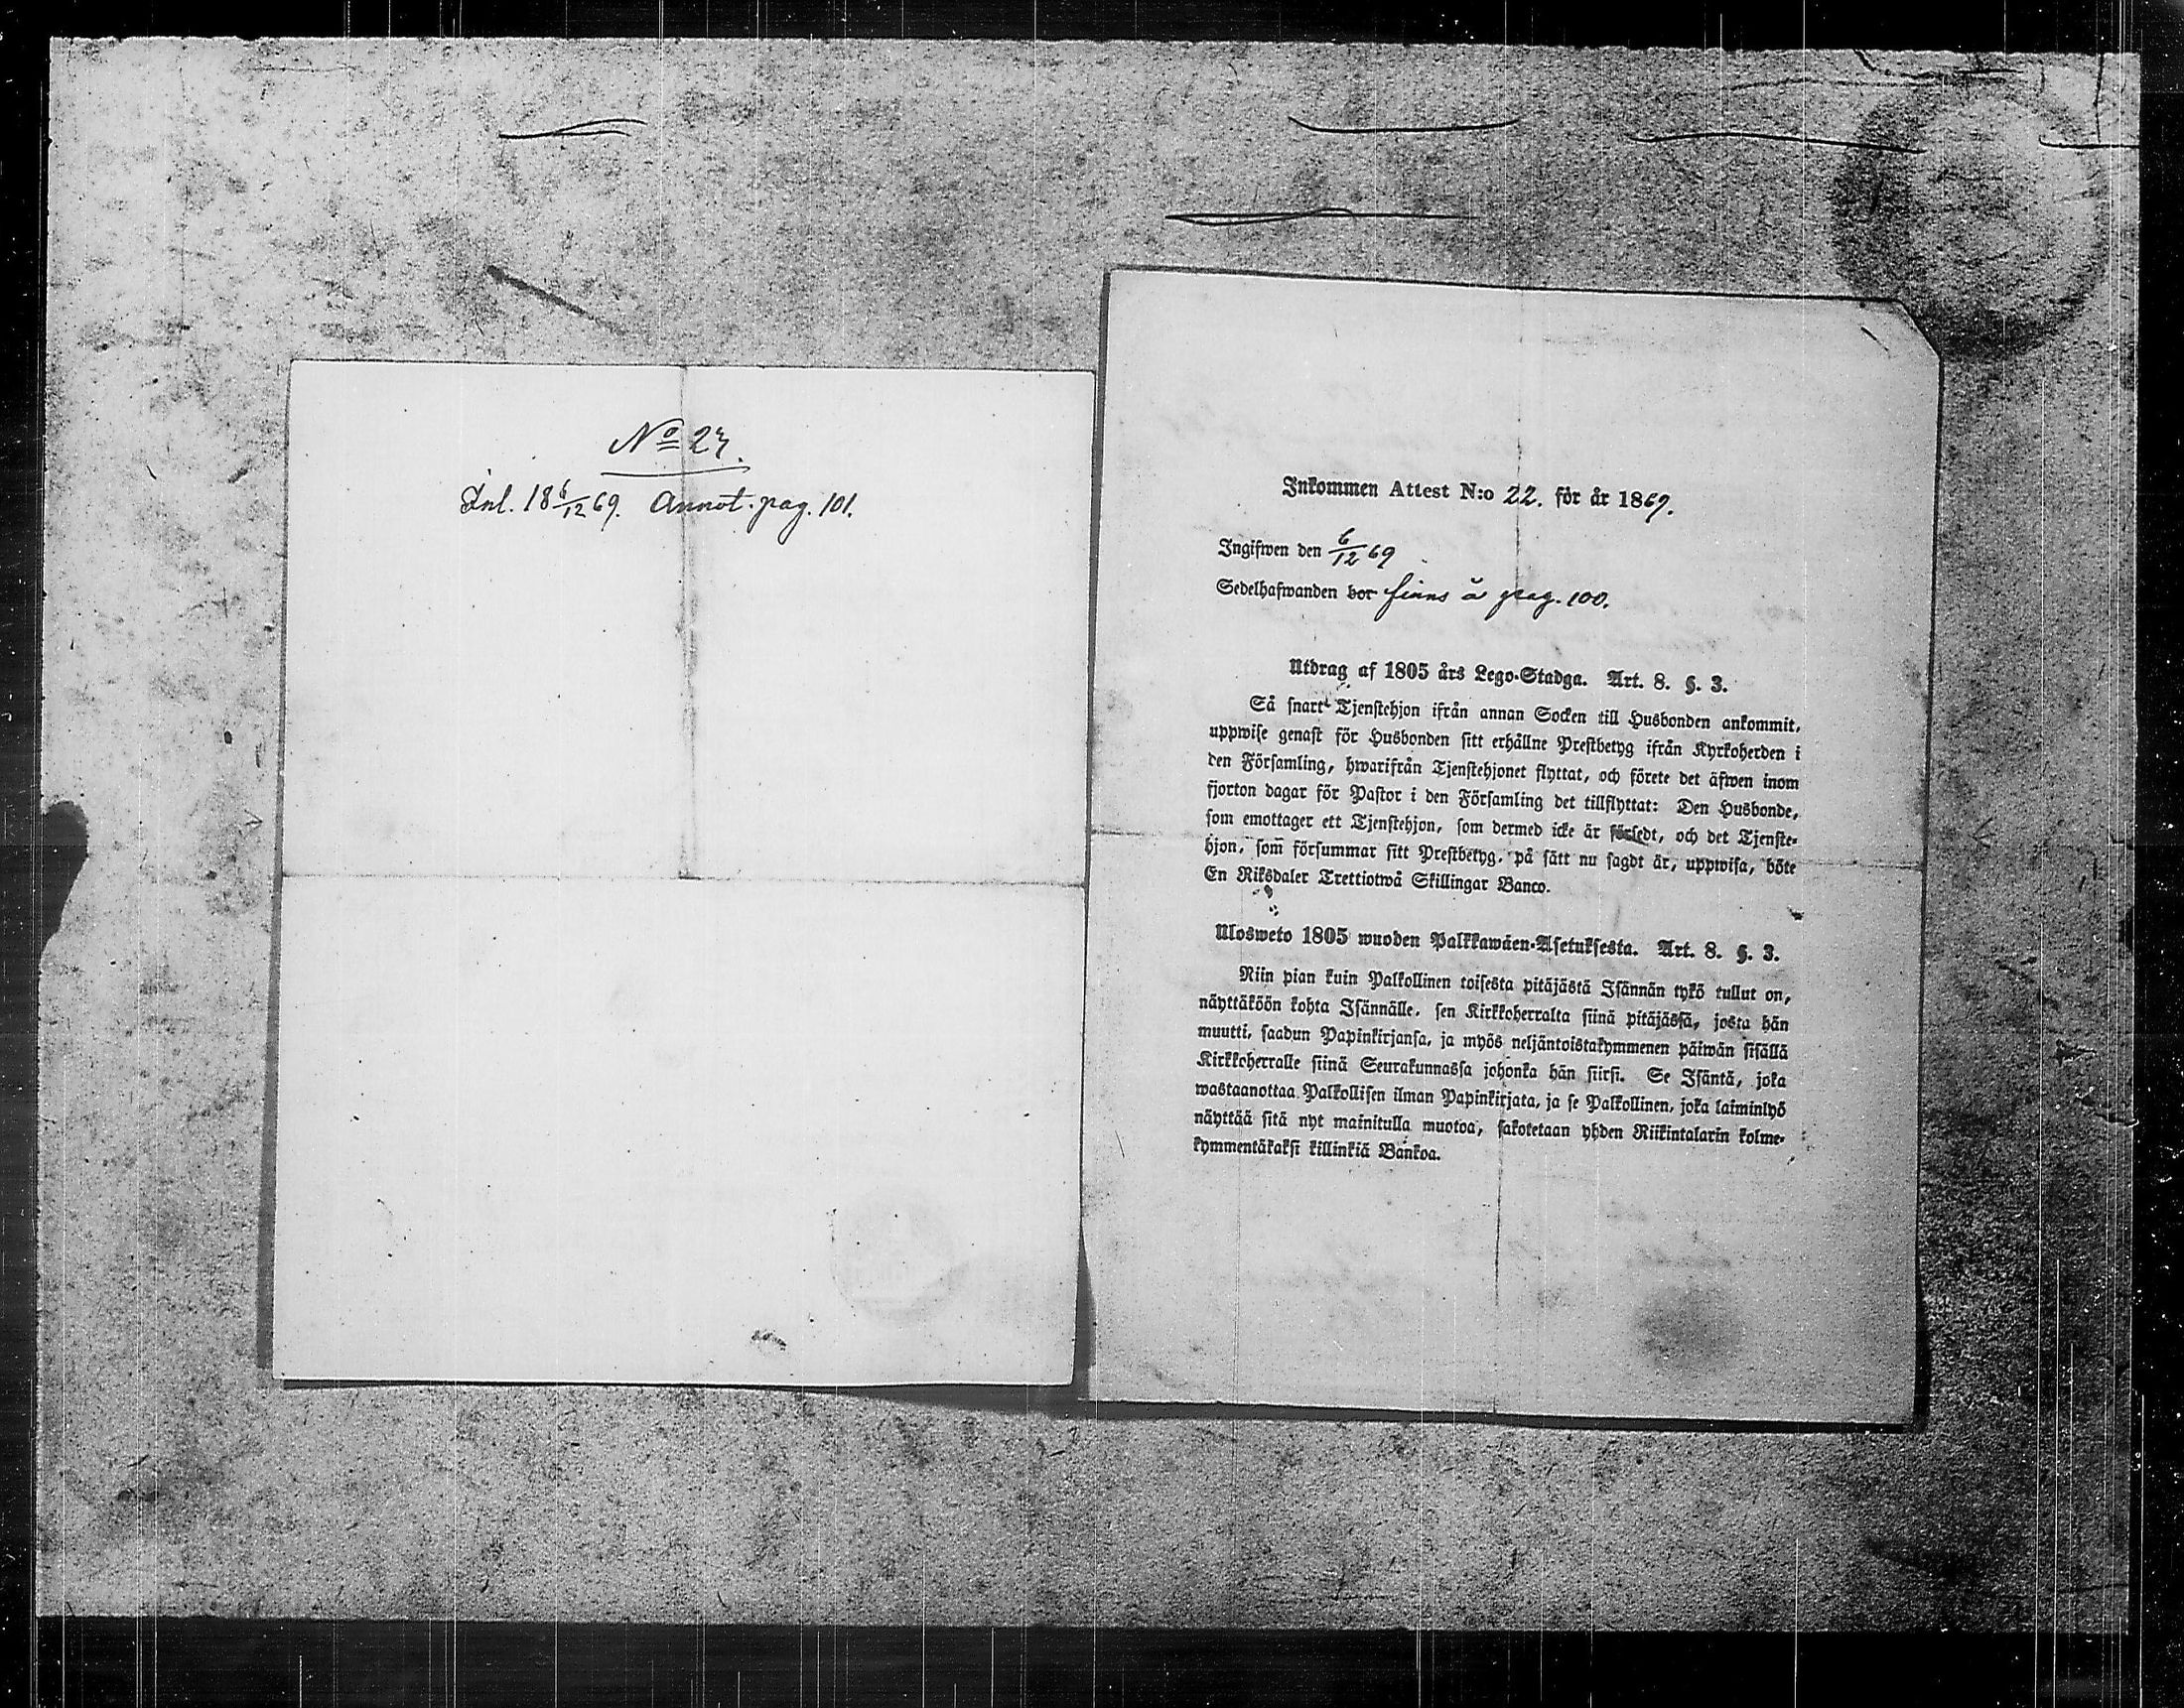 No 23.
Inl. 18 6/12 69. Annot. pag. 101.
Inkommen Attest N:o 22. för år 1869.
Ingifwen den 6/12 69
Sedelhafwanden bor finns å pag. 100.
Utdrag af 1805 års Lego-Stadga. Art. 8. §. 3.
Så snart Tjenstehjon ifrån annan Socken till Husbonden ankommit,
uppwise genast för Husbonden sitt erhållne Prestbetyg ifrån Kyrkoherden i
den Församling, hwarifrån Tjenstehjonet flyttat, och förete det äfwen inom
fjorton dagar för Pastor i den Församling det tillflyttat: Den Husbonde,
som emottager ett Tjenstehjon, som dermed icke är försedt, och det Tjenste-
hjon, som försummar sitt Prestbetyg, på sätt nu sagdt är, uppwisa, böte
En Riksdaler Trettiotwå Skillingar Banco.
Ulosweto 1805 wuoden Palkkawäen-Asetuksesta. Art. 8. §. 3.
Niin pian kuin Palkollinen toisesta pitäjästä Isännän tykö tullut on,
näyttäköön kohta Isännälle, sen Kirkkoherralta siinä pitäjässä, josta hän
muutti, saadun Papinkirjansa, ja myös neljäntoistakymmenen päiwän sisällä
Kirkkoherralle siinä Seurakunnassa johonka hän siirsi. Se Isäntä, joka
wastaanottaa Palkollisen ilman Papinkirjata, ja se Palkollinen, joka laiminlyö
näyttää sitä nyt mainitulla muotoa, sakotetaan yhden Riikintalarin kolme-
kymmentäkaksi killinkiä Bankoa.